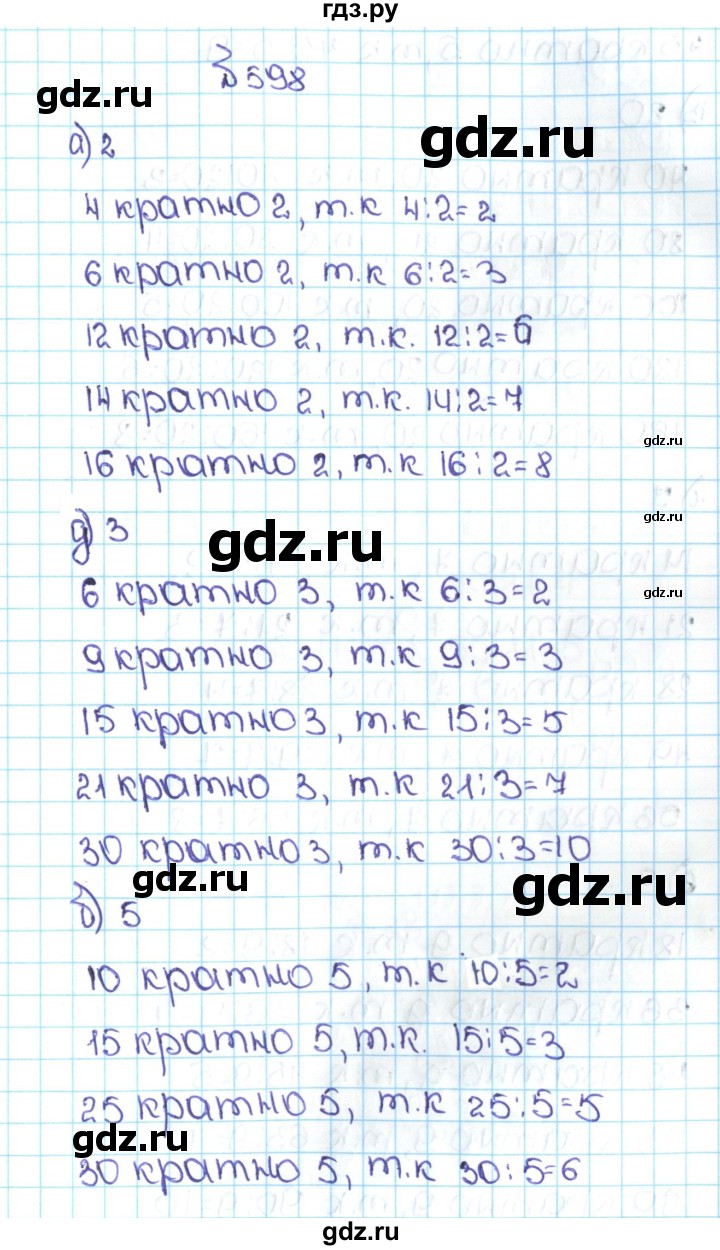 гдз.ру
№598
gdz.ru
gdz.ru
а) 2
4 кратно 2, т.к 4:2=2
6 кратно 2, т.к 6:2=3
12 кратно 2, т.к. 12:2=6
14 кратно 2, т.к. 14:2=7
gdz.ru
16 кратно 2, т.к 16:2=8
gdz.ru
д) 3
gdz.ru
6 кратно 3, т.к 6:3=2
gdz.ru
9 кратно 3, т.к 9:3=3
15 кратно 3, т.к 15:3=5
21 кратно 3, т.к 21:3=7
30 кратно 3, т.к 30:3=10
gdz.ru
gdz.ru
б) 5
10 кратно 5, т.к 10:5=2
15 кратно 5, т.к. 15:5=3
25 кратно 5, т.к 25:5=5
gdz.ru
30 кратно 5, т.к 30:5=6
gdz.ru